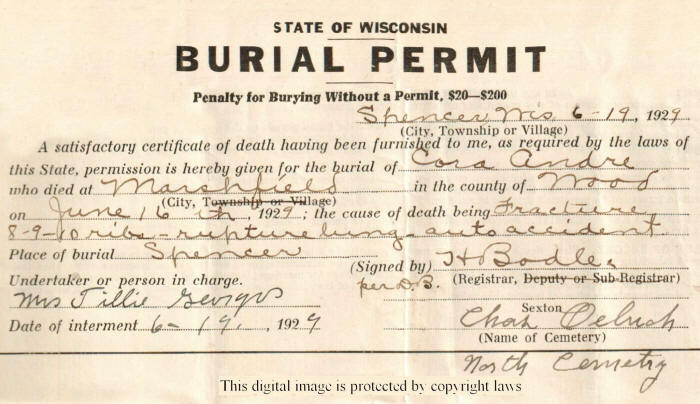 STATE OF WISCONSIN
BURIAL PERMIT
Penalty for Burying Without a Permit, $20—$200
Spencer, Wis 6-19, 1929
(City, Township or Village)
A satisfactory certificate of death having been furnished to me, as required by the laws of
this State, permission is hereby given for the burial of Cora Andre
who died at Marshfield in the county of Wood
(City, Township or Village)
on June 16 th, 1929; the cause of death being Fracture
8-9-10 ribs - rupture lung - auto accident
Place of burial Spencer
(Signed by) H Bodle
per D.B. (Registrar, Deputy or Sub-Registrar)
Undertaker or person in charge.
Mrs Tillie
Date of interment 6-19, 1929
Sexton
Chas
(Name of Cemetery)
North Cemetry
This digital image is protected by copyright laws